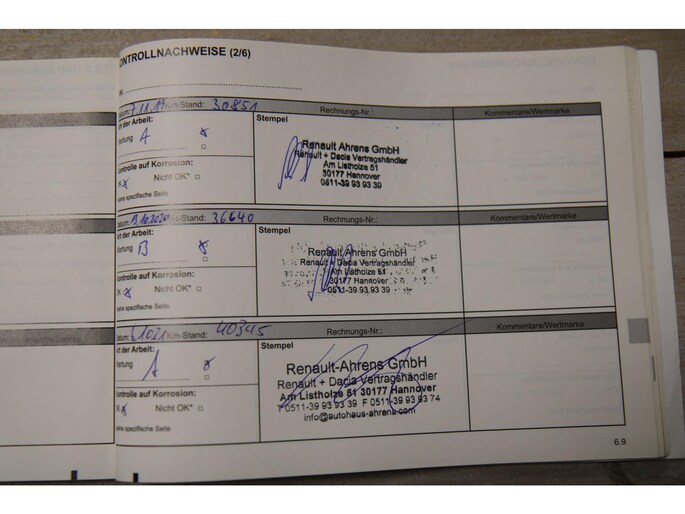 ONTROLLNACHWEISE (2/6)
IN:
atum: 7.11.19 Km-Stand: 30851 Rechnungs-Nr.: Kommentare/Wertmarke
rt der Arbeit: Stempel
Wartung A
ontrolle auf Korrosion:
Nicht OK*
ehe spezifische Seite
Renault Ahrens GmbH
Renault + Dacia Vertragshändler
Am Listholze 51
30177 Hannover
0511-39 93 93 39
Datum: 13.10.2020 Km-Stand: 36640 Rechnungs-Nr.: Kommentare/Wertmarke
rt der Arbeit: Stempel
Wartung B
ontrolle auf Korrosion:
Nicht OK*
ehe spezifische Seite
Renault Ahrens GmbH
Renault + Dacia Vertragshändler
Am Listholze 51
30177 Hannover
0511-39 93 93 39
Datum: Km-Stand: 40345 Rechnungs-Nr.: Kommentare/Wertmarke
rt der Arbeit: Stempel
Wartung A
ontrolle auf Korrosion:
Nicht OK*
ehe spezifische Seite
Renault-Ahrens GmbH
Renault + Dacia Vertragshändler
Am Listholze 51 30177 Hannover
T 0511-39 93 93 39 F 0511-39 93 93 74
info@autohaus-ahrens.com
6.9